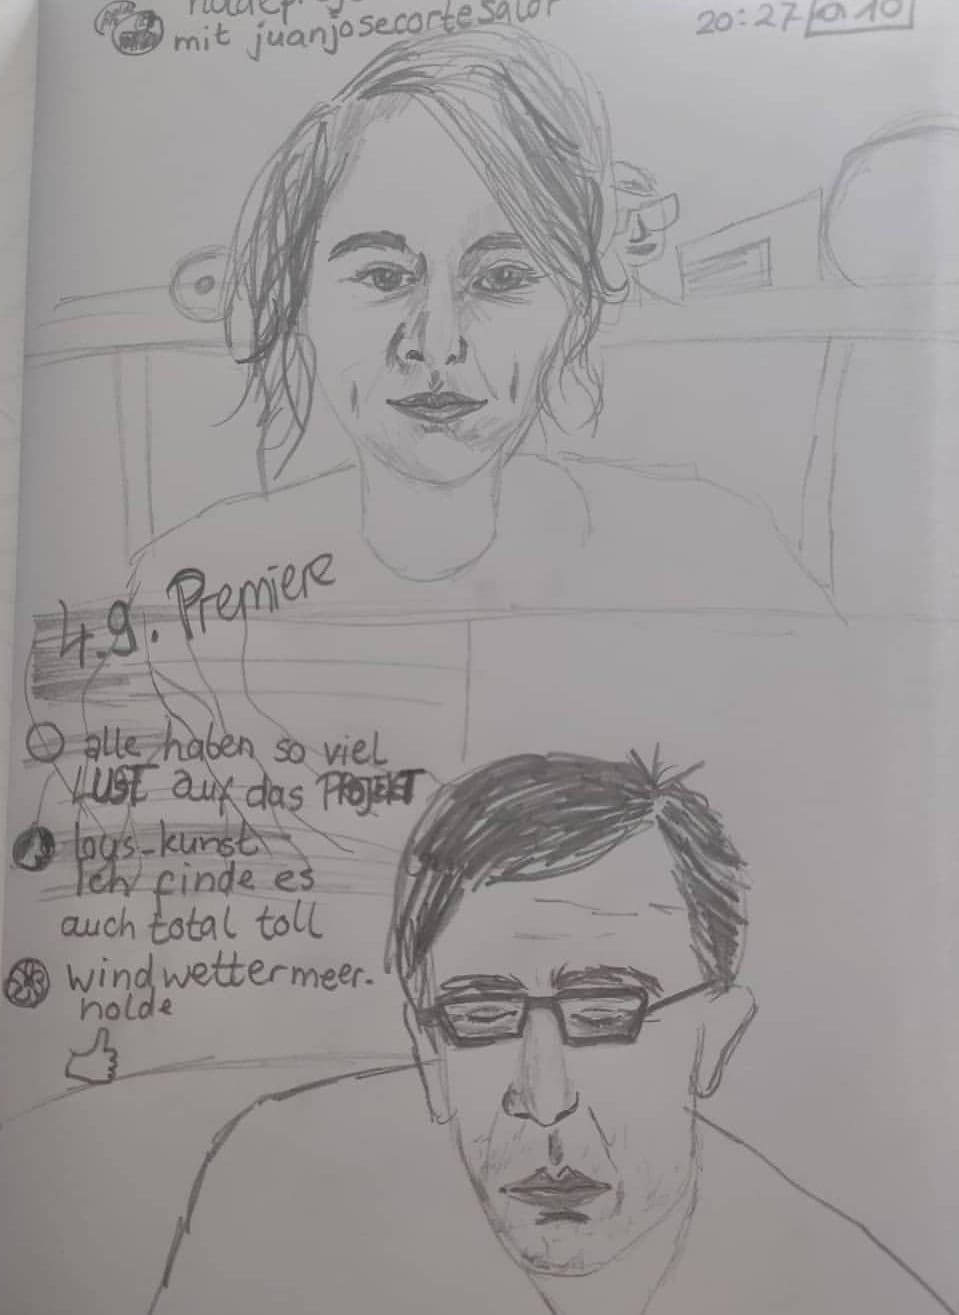 mit juanjosecortesalor
20:27 @ 10
4.9. Premiere
alle haben so viel
LUST auf das PROJEKT
loys-kunst
Ich finde es
auch total toll
windwettermeer.
nolde